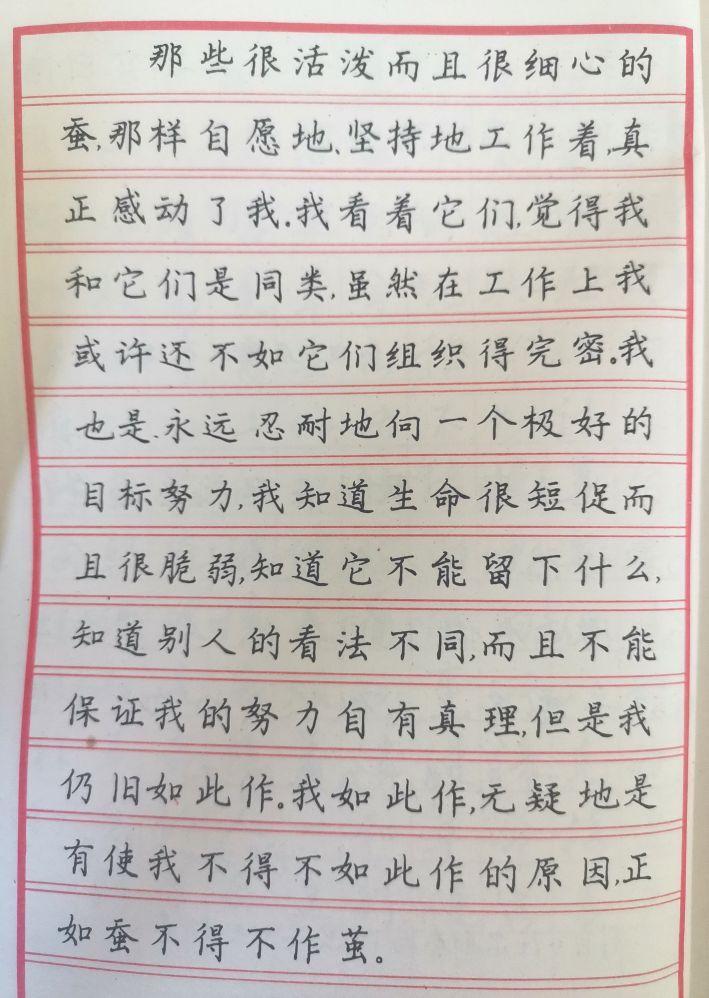 那些很活泼而且很细心的
蚕,那样自愿地、坚持地工作着,真
正感动了我.我看着它们,觉得我
和它们是同类,虽然在工作上我
或许还不如它们组织得完密。我
也是、永远忍耐地向一个极好的
目标努力,我知道生命很短促而
且很脆弱,知道它不能留下什么,
知道别人的看法不同,而且不能
保证我的努力自有真理,但是我
仍旧如此作。我如此作,无疑地是
有使我不得不如此作的原因,正
如蚕不得不作茧。